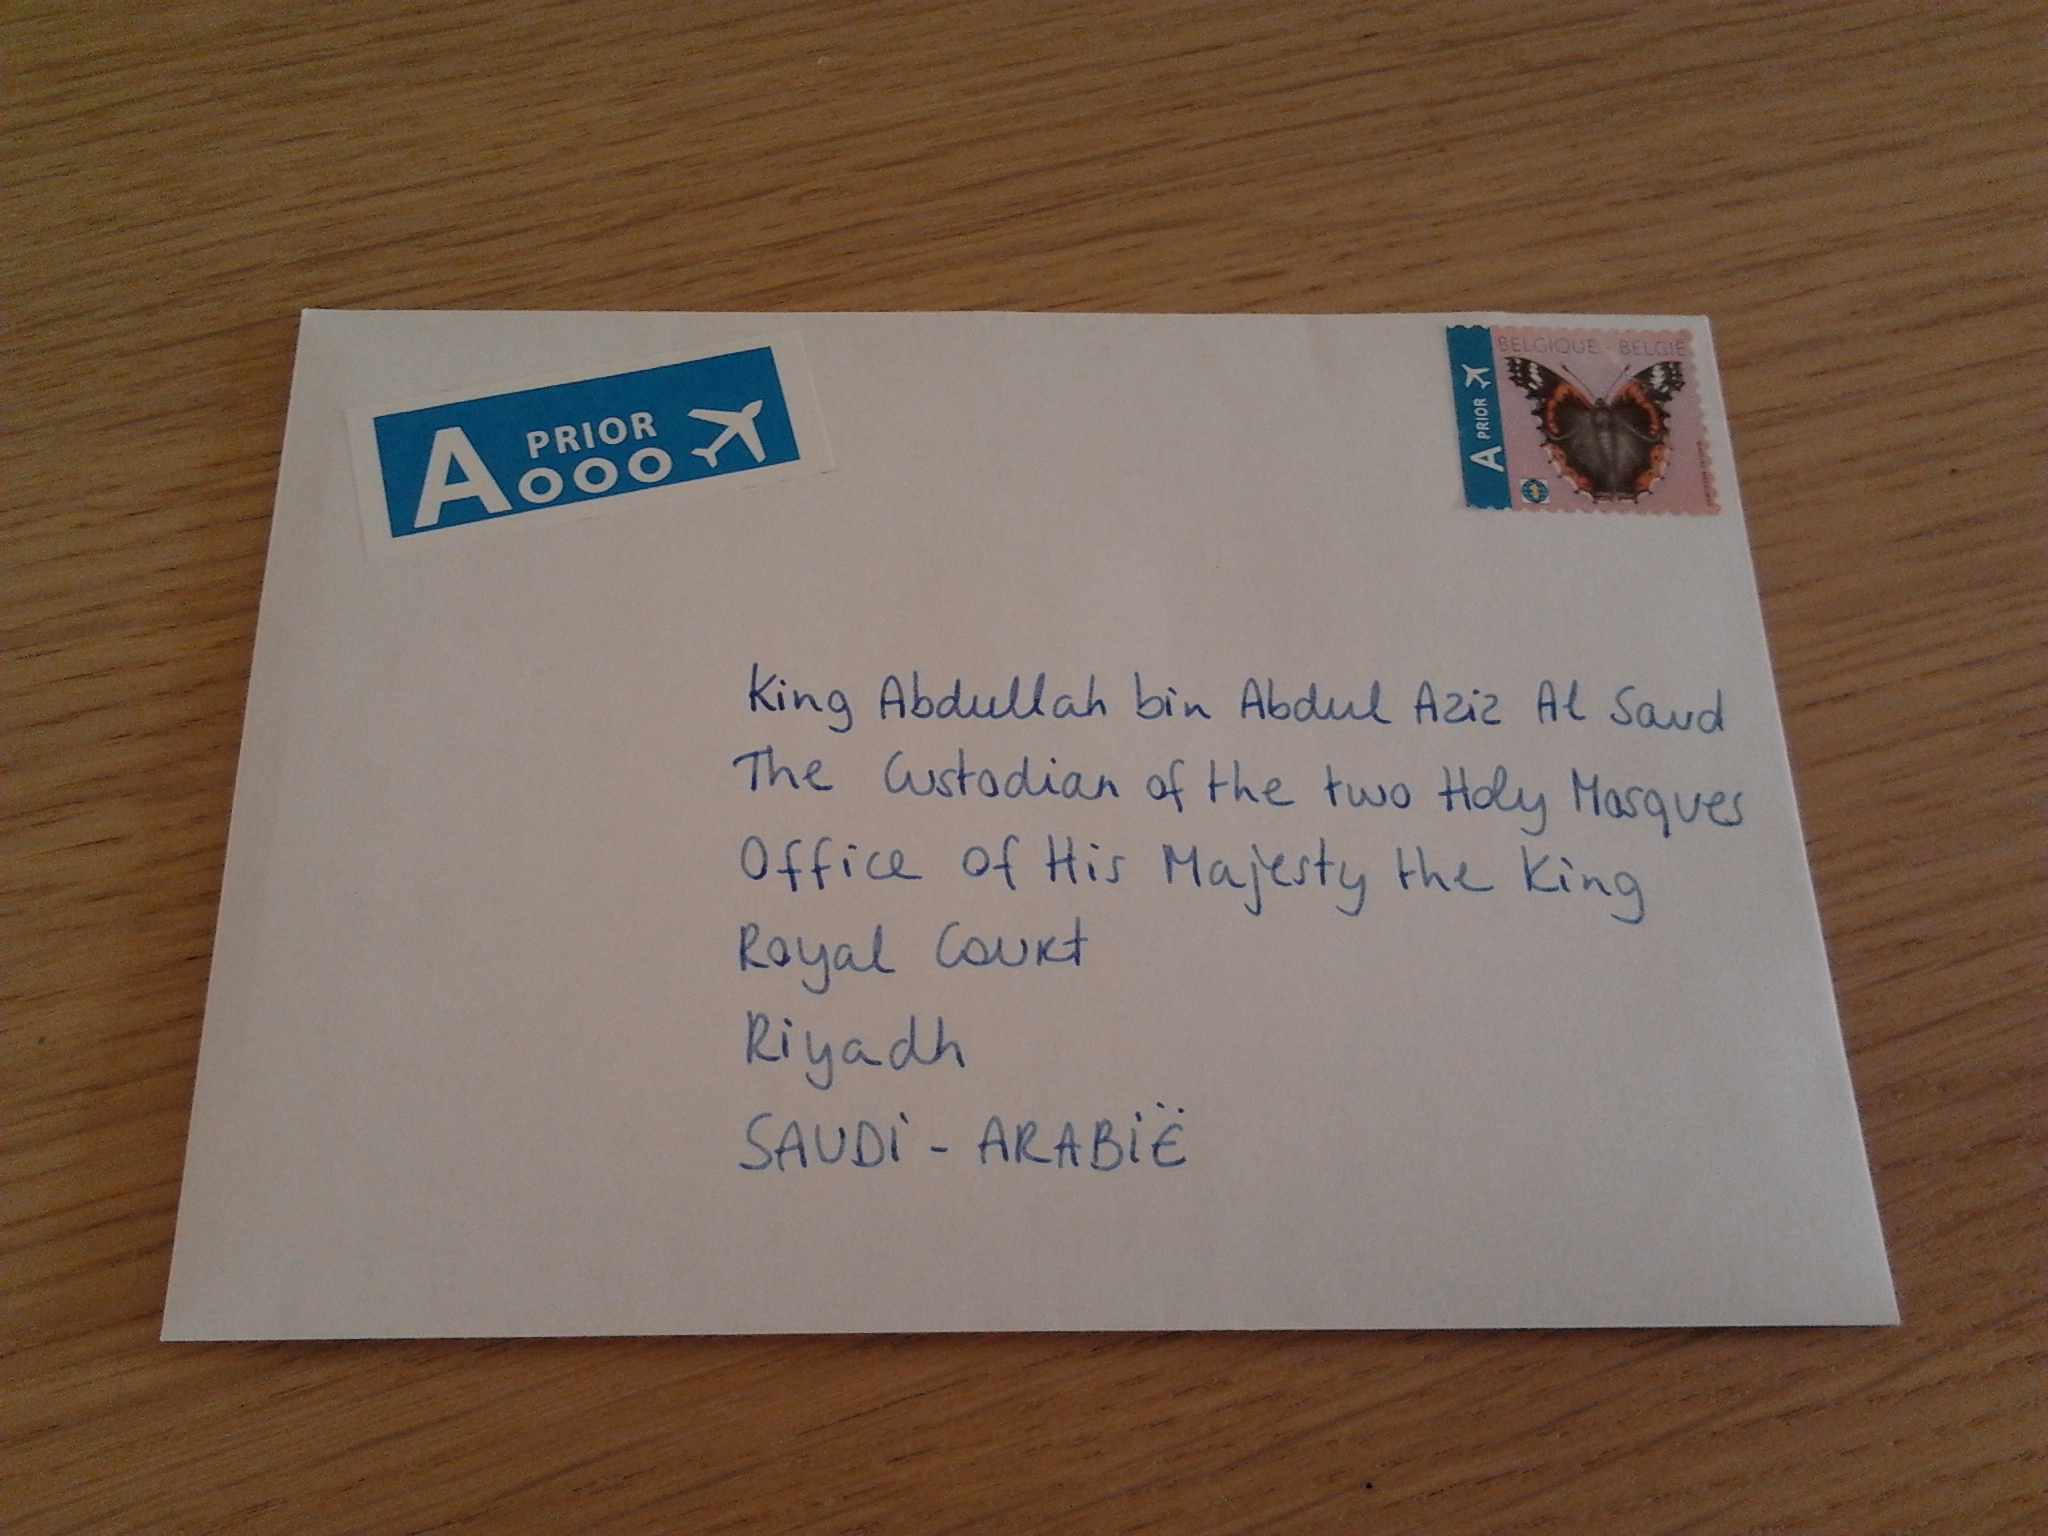 A PRIOR
BELGIQUE - BELGIË
A PRIOR
King Abdullah bin Abdul Aziz Al Saud
The Custodian of the two Holy Mosques
Office of His Majesty the King
Royal Court
Riyadh
SAUDi - ARABiË